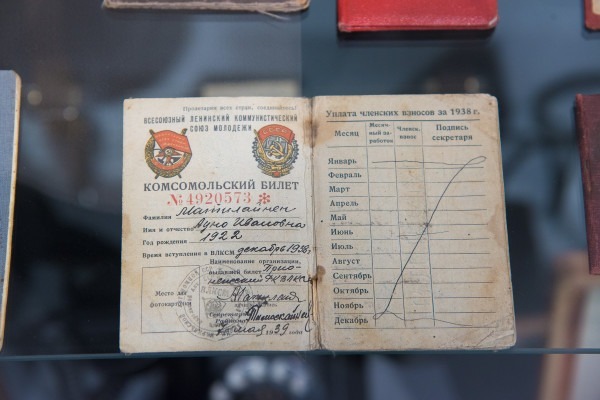 Пролетарии всех стран, соединяйтесь!
ВСЕСОЮЗНЫЙ ЛЕНИНСКИЙ КОММУНИСТИЧЕСКИЙ
СОЮЗ МОЛОДЕЖИ
КОМСОМОЛЬСКИЙ БИЛЕТ
№ 4920573 *
Фамилия Матилайнен
Имя и отчество Ауно Ивановна
Год рождения 1922
Время вступления в ВЛКСМ декабрь 1938 г
Наименование организации,
выдавшей билет
Место для
фотокарточки
ВЛКСМ
Секретарь
мая 1939
Уплата членских взносов за 1938 г.
Месяц
Месяч-ный за-работок
Членск. взнос
Подпись секретаря
Январь
Февраль
Март
Апрель
Май
Июнь
Июль
Август
Сентябрь
Октябрь
Ноябрь
Декабрь